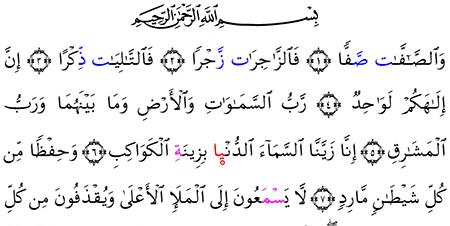 بِسْمِ اللَّهِ الرَّحْمَٰنِ الرَّحِيمِ
وَالصَّـٰٓفَّـٰتِ صَفًّا ﴿١﴾ فَالزَّٰجِرَٰتِ زَّجْرًا ﴿٢﴾ فَالتَّـٰلِيَـٰتِ ذِّكْرًا ﴿٣﴾ إِنَّ
إِلَـٰهَكُمْ لَوَاحِدٌ ﴿٤﴾ رَّبُّ السَّمَـٰوَٰتِ وَالْأَرْضِ وَمَا بَيْنَهُمَا وَرَبُّ
الْمَشَـٰرِقِ ﴿٥﴾ إِنَّا زَيَّنَّا السَّمَآءَ الدُّنْيَا بِزِينَةِ الْكَوَاكِبِ ﴿٦﴾ وَحِفْظًا مِّن
كُلِّ شَيْطَـٰنٍ مَّارِدٍ ﴿٧﴾ لَّا يَسْمَعُونَ إِلَى الْمَلَإِ الْأَعْلَىٰ وَيُقْذَفُونَ مِن كُلِّ